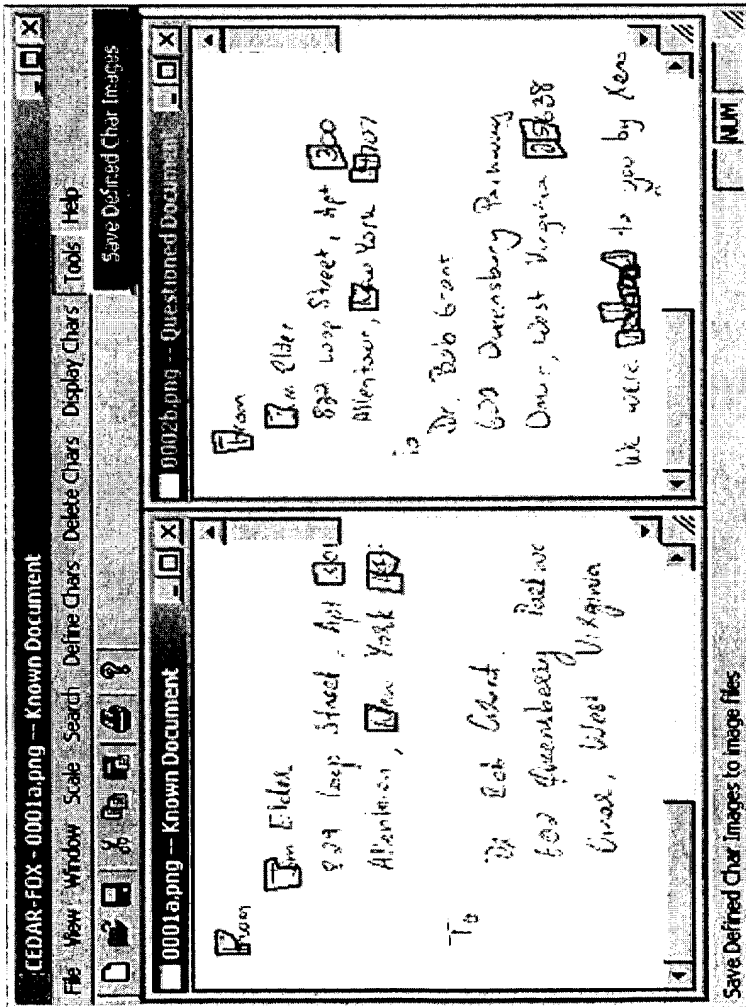 CEDAR-FOX - 0001a.png -- Known Document
File View Window Scale Search Define Chars Delete Chars Display Chars Tools Help
Save Defined Char Images
0001a.png -- Known Document
From
Tim Elder
829 Loop Street, Apt 30
Allentown, New York
To
Dr Bob Grant
602 Queensberry
Omar, West Virginia
0002b.png -- Questioned Document
From
Jim Elder
829 Loop Street, Apt 300
Allentown, New York 14707
To
Dr. Bob Grant
602 Queensbury Parkway
Omar, West Virginia 25638
We were to you by Xero
Save Defined Char Images to image files
NUM